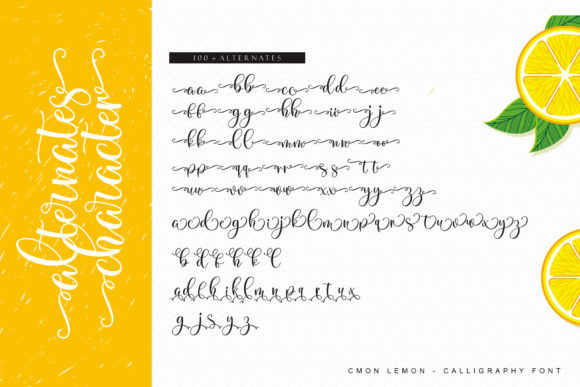 alternates
character
100 + ALTERNATES
aa bb cc dd ee
ff gg hh ii jj
kk ll mm nn oo
pp qq rr ss tt
uu vv ww xx yy zz
a d e g h i j k l m n p q r s t u v w x y z
b d f h k l
a d e h i k l m n p q r t u x
g j s y z
CMON LEMON - CALLIGRAPHY FONT